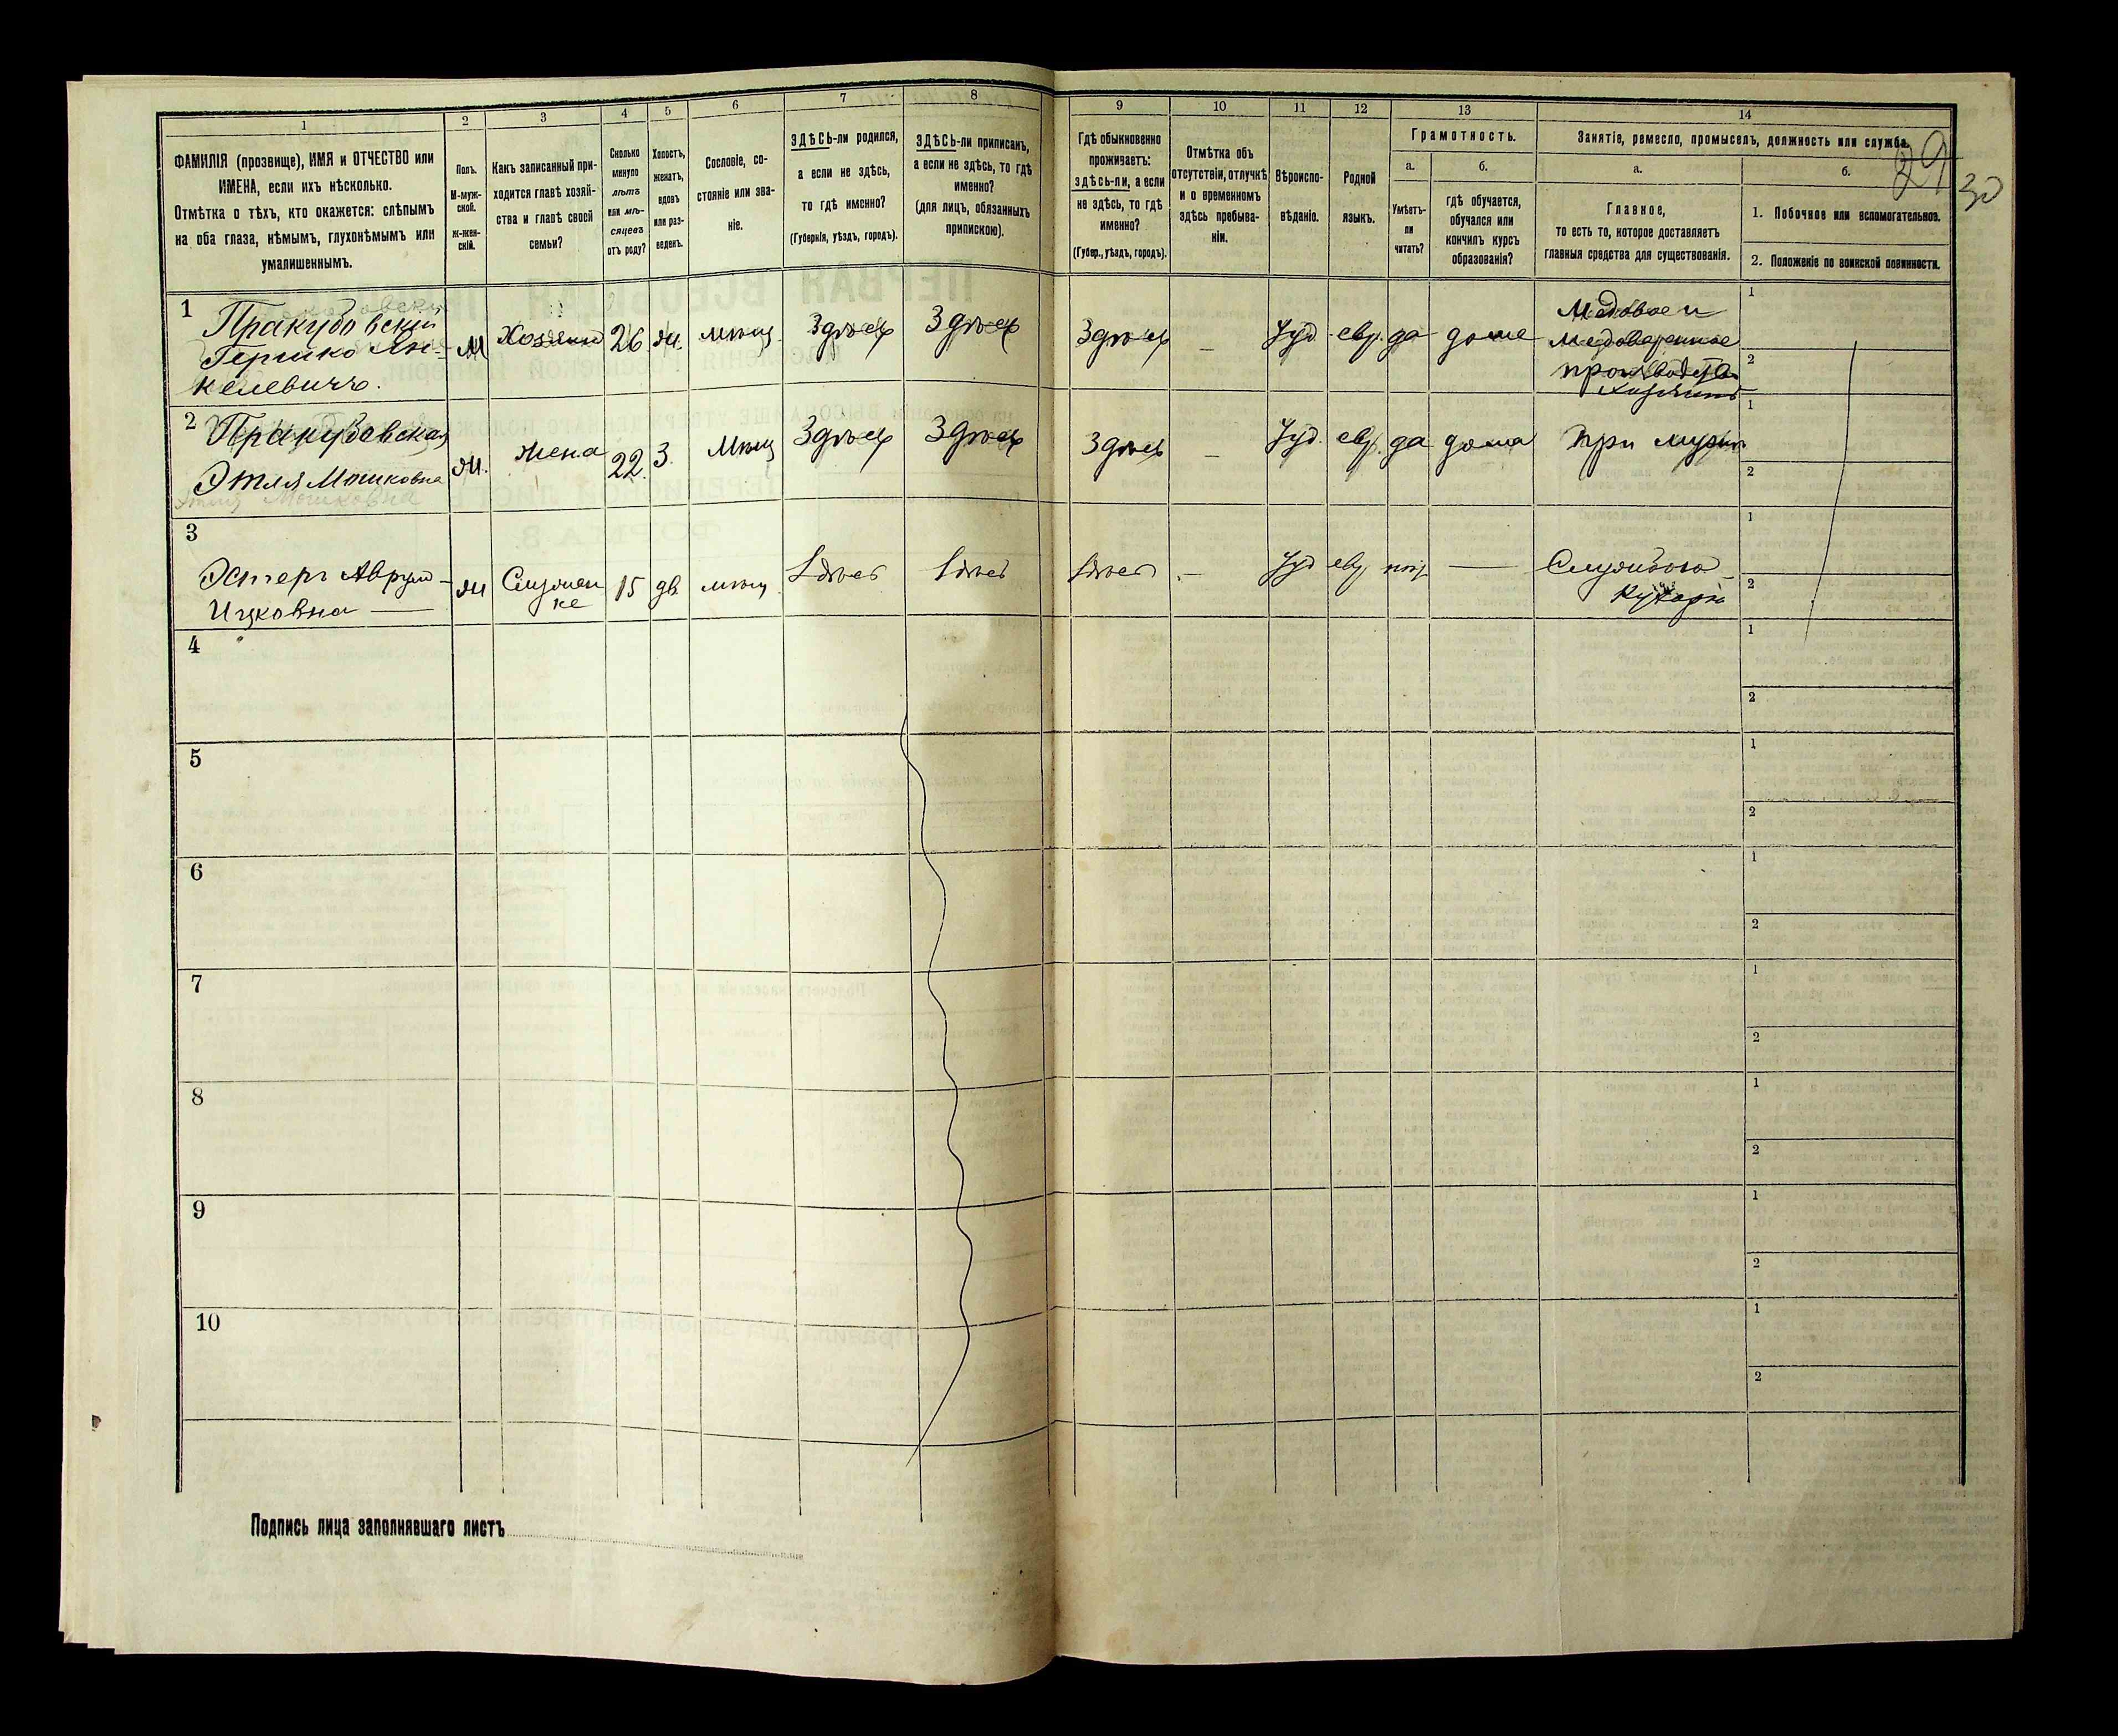 1
2
3
4
5
6
7
8
ФАМИЛІЯ (прозвище), ИМЯ и ОТЧЕСТВО или
ИМЕНА, если ихъ нѣсколько.
Отмѣтка о тѣхъ, кто окажется: слѣпымъ
на оба глаза, нѣмымъ, глухонѣмымъ или
умалишеннымъ.
Полъ.
М-муж-
ской.
Ж-жен-
скій.
Какъ записанный при-
ходится главѣ хозяй-
ства и главѣ своей
семьи?
Сколько
минуло
лѣтъ
или мѣ-
сяцевъ
отъ роду?
Холостъ,
женатъ,
вдовъ
или раз-
веденъ.
Сословіе, со-
стояніе или зва-
ніе.
ЗДѢСЬ-ли родился,
а если не здѣсь,
то гдѣ именно?
(Губернія, уѣздъ, городъ).
ЗДѢСЬ-ли приписанъ,
а если не здѣсь, то гдѣ
именно?
(для лицъ, обязанныхъ
припискою).
9
10
11
12
13
14
Гдѣ обыкновенно
проживаетъ:
здѣсь-ли, а если
не здѣсь, то гдѣ
именно?
(Губер., уѣздъ, городъ).
Отмѣтка объ
отсутствіи, отлучкѣ
и о временномъ
здѣсь пребыва-
ніи.
Вѣроиспо-
вѣданіе.
Родной
языкъ.
Грамотность.
а.
Умѣетъ-
ли
читать?
б.
гдѣ обучается,
обучался или
кончилъ курсъ
образованія?
Занятіе, ремесло, промыселъ, должность или служба.
а.
Главное,
то есть то, которое доставляетъ
главныя средства для существованія.
б.
1. Побочное или вспомогательное.
2. Положеніе по воинской повинности.
29
30
1
Пракудовскій
Гершко Ян-
келевичъ.
М Хозяинъ 26 ж. мѣщ. Здѣсь Здѣсь
Здѣсь — Іуд. евр. да дома
Медовое и
медоваренное
производство
хозяинъ
1
2
2 Пракудовская
Этля Мошковна
Этля Мошковна
ж. жена 22 З. Мѣщ Здѣсь Здѣсь
Здѣсь — Іуд. евр. да дома При мужѣ
1
2
3
Эстеръ Аврум-
Ицковна —
ж 15 дв мѣщ Здѣсь Здѣсь
Здѣсь — Іуд евр нѣт —
Кухарк
1
2
4
1
2
5
1
2
6
1
2
7
1
2
8
1
2
9
1
2
10
1
2
Подпись лица заполнявшаго листъ